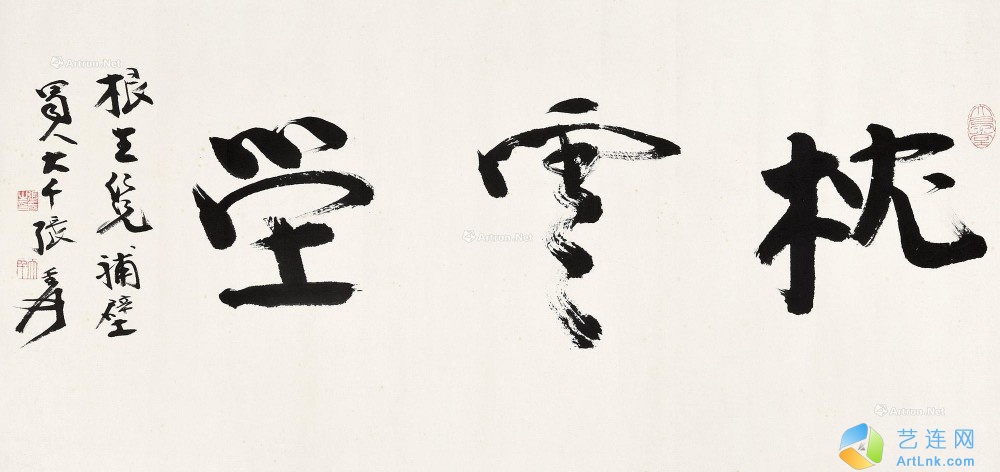 枕雲堂
根生仁兄補壁
蜀人大千張爰
Artron.Net
Artron.Net
Artron.Net
艺连网
ArtLnk.com